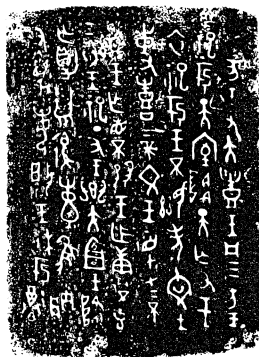 王又大豊王凡三方王
祀于天室降天亡又王
衣祀于王不顯考文王
事喜上帝文王在上不
顯王乍省不王乍不克
三衣王祀丁丑王鄉大宜王降
亡爵隹朕
每王休于